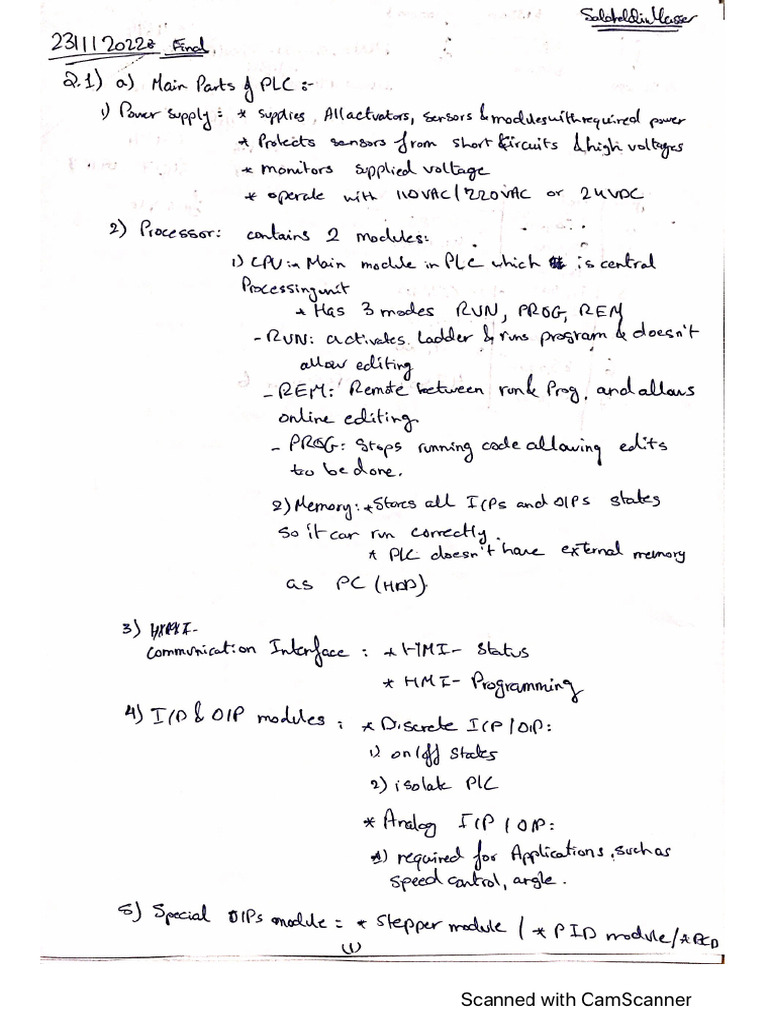 Salaheldin Yasser
23/11/2022 Final
Q.1) a) Main Parts of PLC :-
1) Power Supply : * supplies, All actuators, sensors & modules with required power
* Protects sensors from short circuits & high voltages
* monitors supplied voltage
* operate with 110VAC/220VAC or 24VDC
2) Processor: contains 2 modules:
1) CPU: Main module in PLC which is central
Processing unit
* Has 3 modes RUN, PROG, REM
- RUN: activates ladder & runs program & doesn't
allow editing
- REM: Remote between run & Prog, and allows
online editing.
- PROG: Stops running code allowing edits
to be done.
2) Memory: * Stores all I/Ps and O/Ps states
so it can run correctly.
* PLC doesn't have external memory
as PC (HDD).
3)
Communication Interface : * HMI- Status
* HMI- Programming
4) I/P & O/P modules : * Discrete I/P / O/P:
1) on/off states
2) isolate PLC
* Analog I/P / O/P:
1) required for Applications, such as
speed control, angle.
5) Special O/Ps module = * Stepper module / * PID module / * BCD
(1)
Scanned with CamScanner